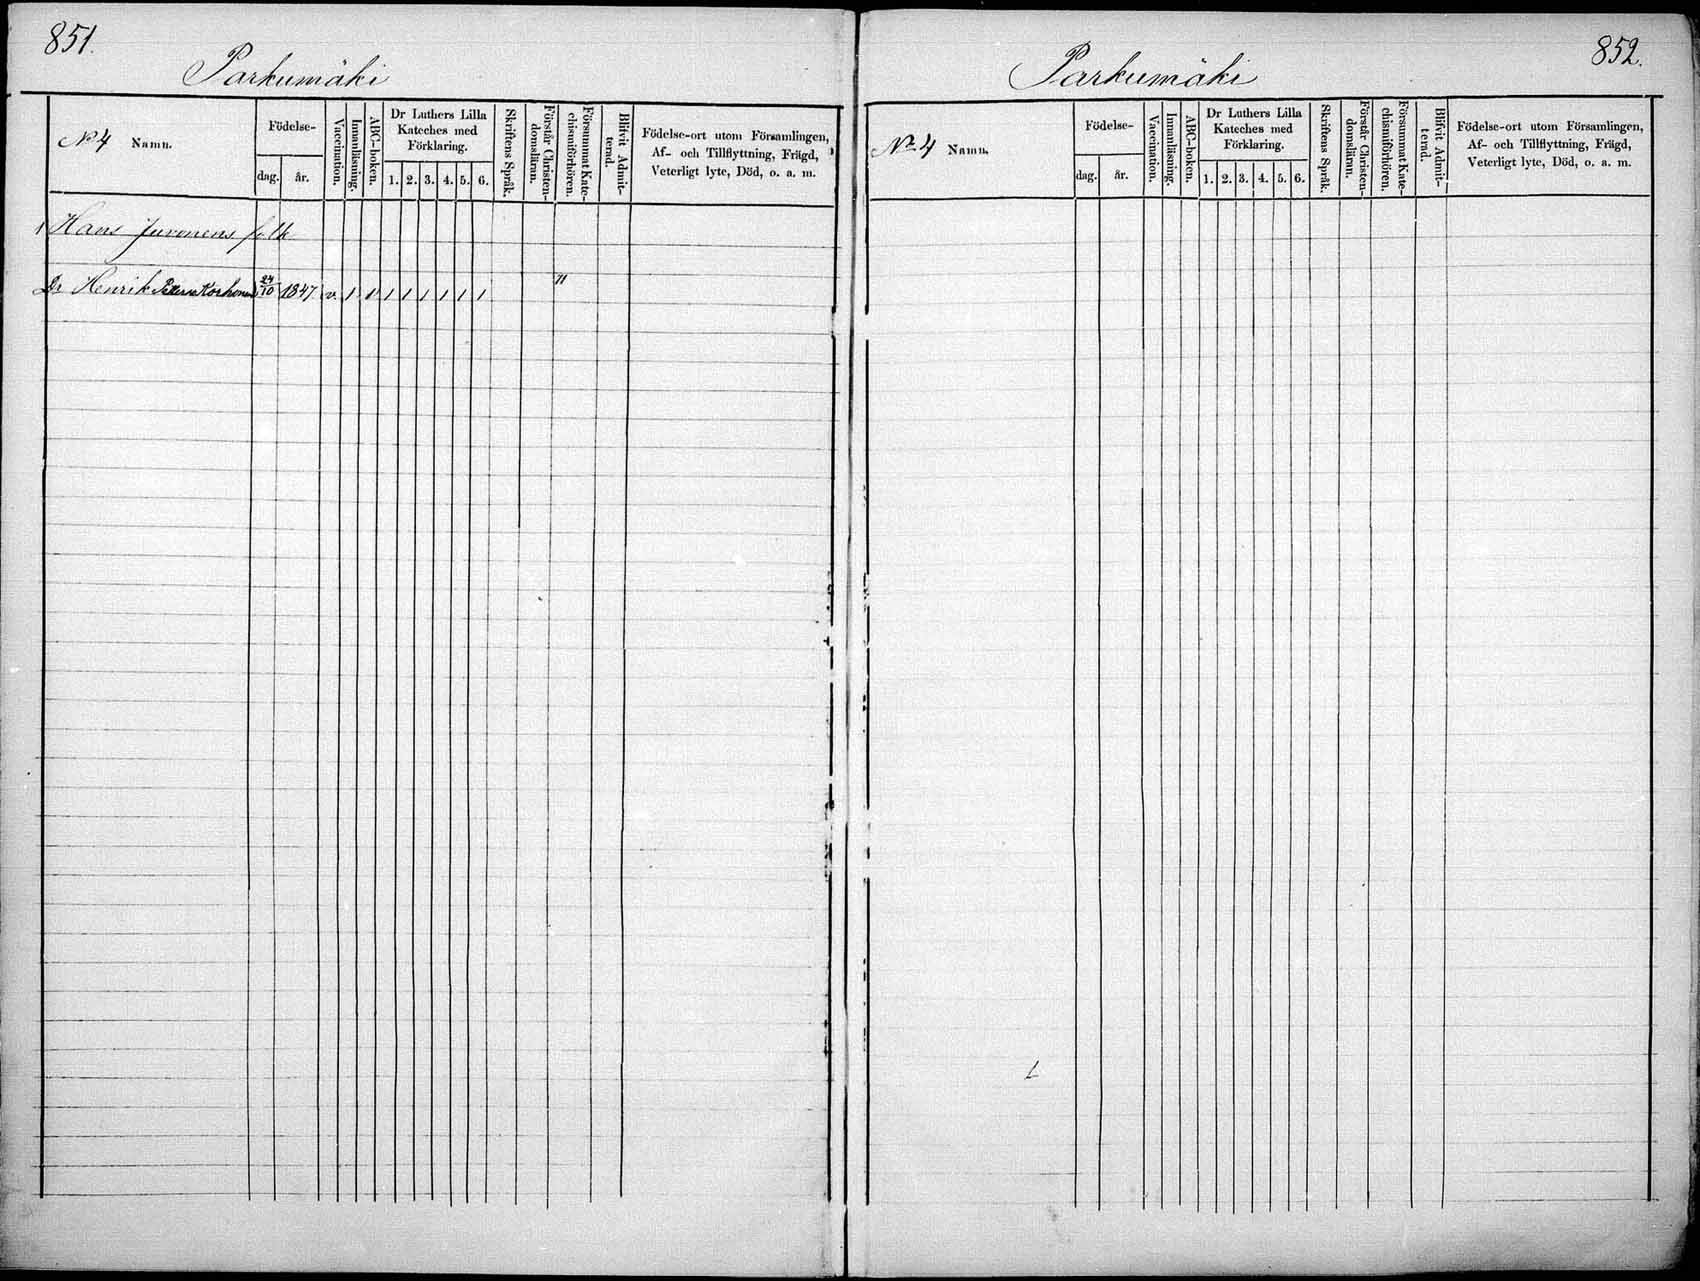 851.
Parkumäki
No 4 Namn.
Födelse-
dag. år.
Vaccination.
Innanläsning.
ABC-boken.
Dr Luthers Lilla
Kateches med
Förklaring.
1. 2. 3. 4. 5. 6.
Skriftens Språk.
Förstår Christen-
domslären.
Försummat Kate-
chismiförhören.
Blifvit Admit-
terad.
Födelse-ort utom Församlingen,
Af- och Tillflyttning, Frägd,
Veterligt lyte, Död, o. a. m.
1 Hans Juvonens folk
Dr Henrik Petters Korhonen 24/10 1847 v. 1 1 1 1 1 1 1 1 71
852.
Parkumäki
No 4 Namn.
Födelse-
dag. år.
Vaccination.
Innanläsning.
ABC-boken.
Dr Luthers Lilla
Kateches med
Förklaring.
1. 2. 3. 4. 5. 6.
Skriftens Språk.
Förstår Christen-
domslären.
Försummat Kate-
chismiförhören.
Blifvit Admit-
terad.
Födelse-ort utom Församlingen,
Af- och Tillflyttning, Frägd,
Veterligt lyte, Död, o. a. m.